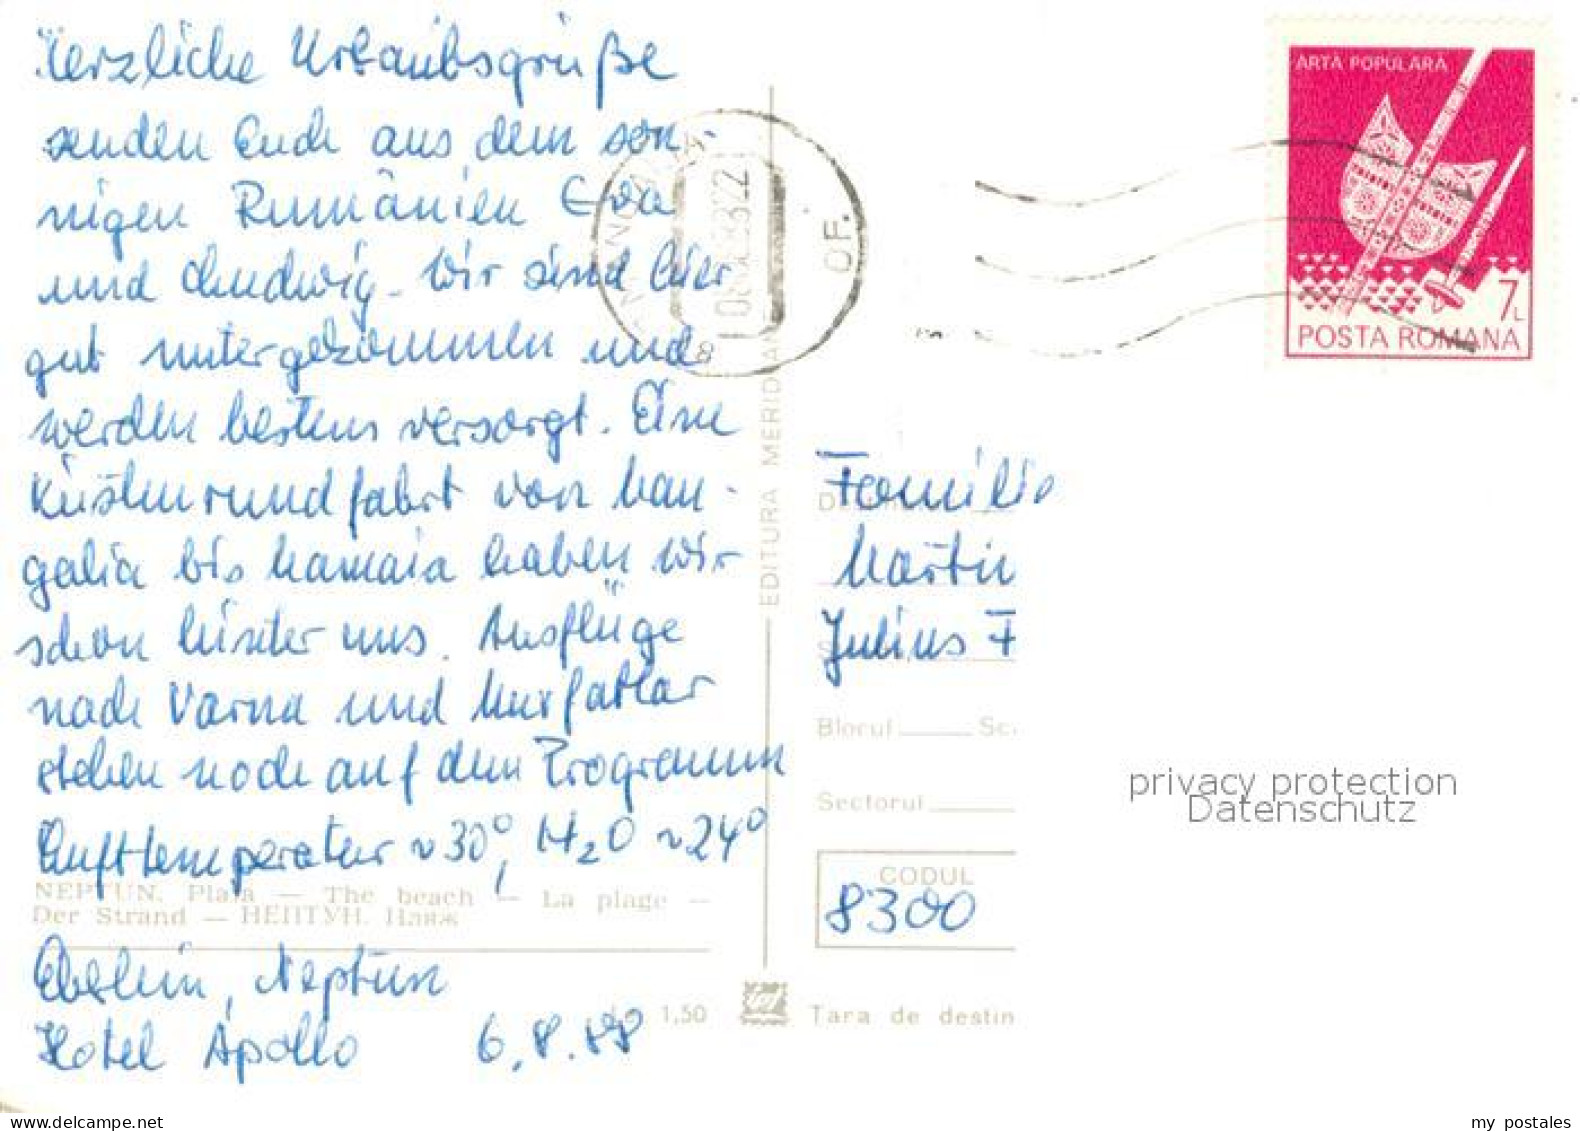 Herzliche Urlaubsgrüße
senden Euch aus dem son-
nigen Rumänien Eva
und Ludwig. Wir sind hier
gut untergekommen und
werden bestens versorgt. Eine
Küstenrundfahrt von Man-
galia bis Mamaia haben wir
schon hinter uns. Ausflüge
nach Varna und Murfatlar
stehen noch auf dem Programm
Lufttemperatur ~ 30°, H₂O ~ 24°
NEPTUN. Plaja — The beach — La plage —
Der Strand — НЕПТУН. Пляж
Neptun
Hotel Apollo 6.8.88
1,50
EDITURA MERIDIANE
OF.
ARTA POPULARA
7L
POSTA ROMANA
Familie
Martin
Julius F
Blocul Sc.
Sectorul
CODUL
8300
Tara de destin
privacy protection
Datenschutz
my postales